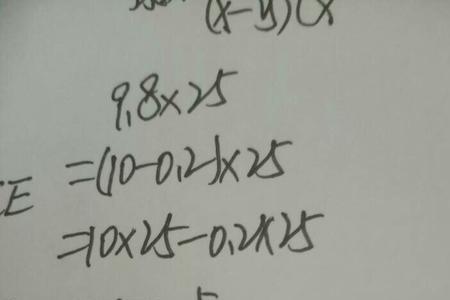 (x-y)(x
9.8×25
=(10-0.2)×25
E
=10×25-0.2×25